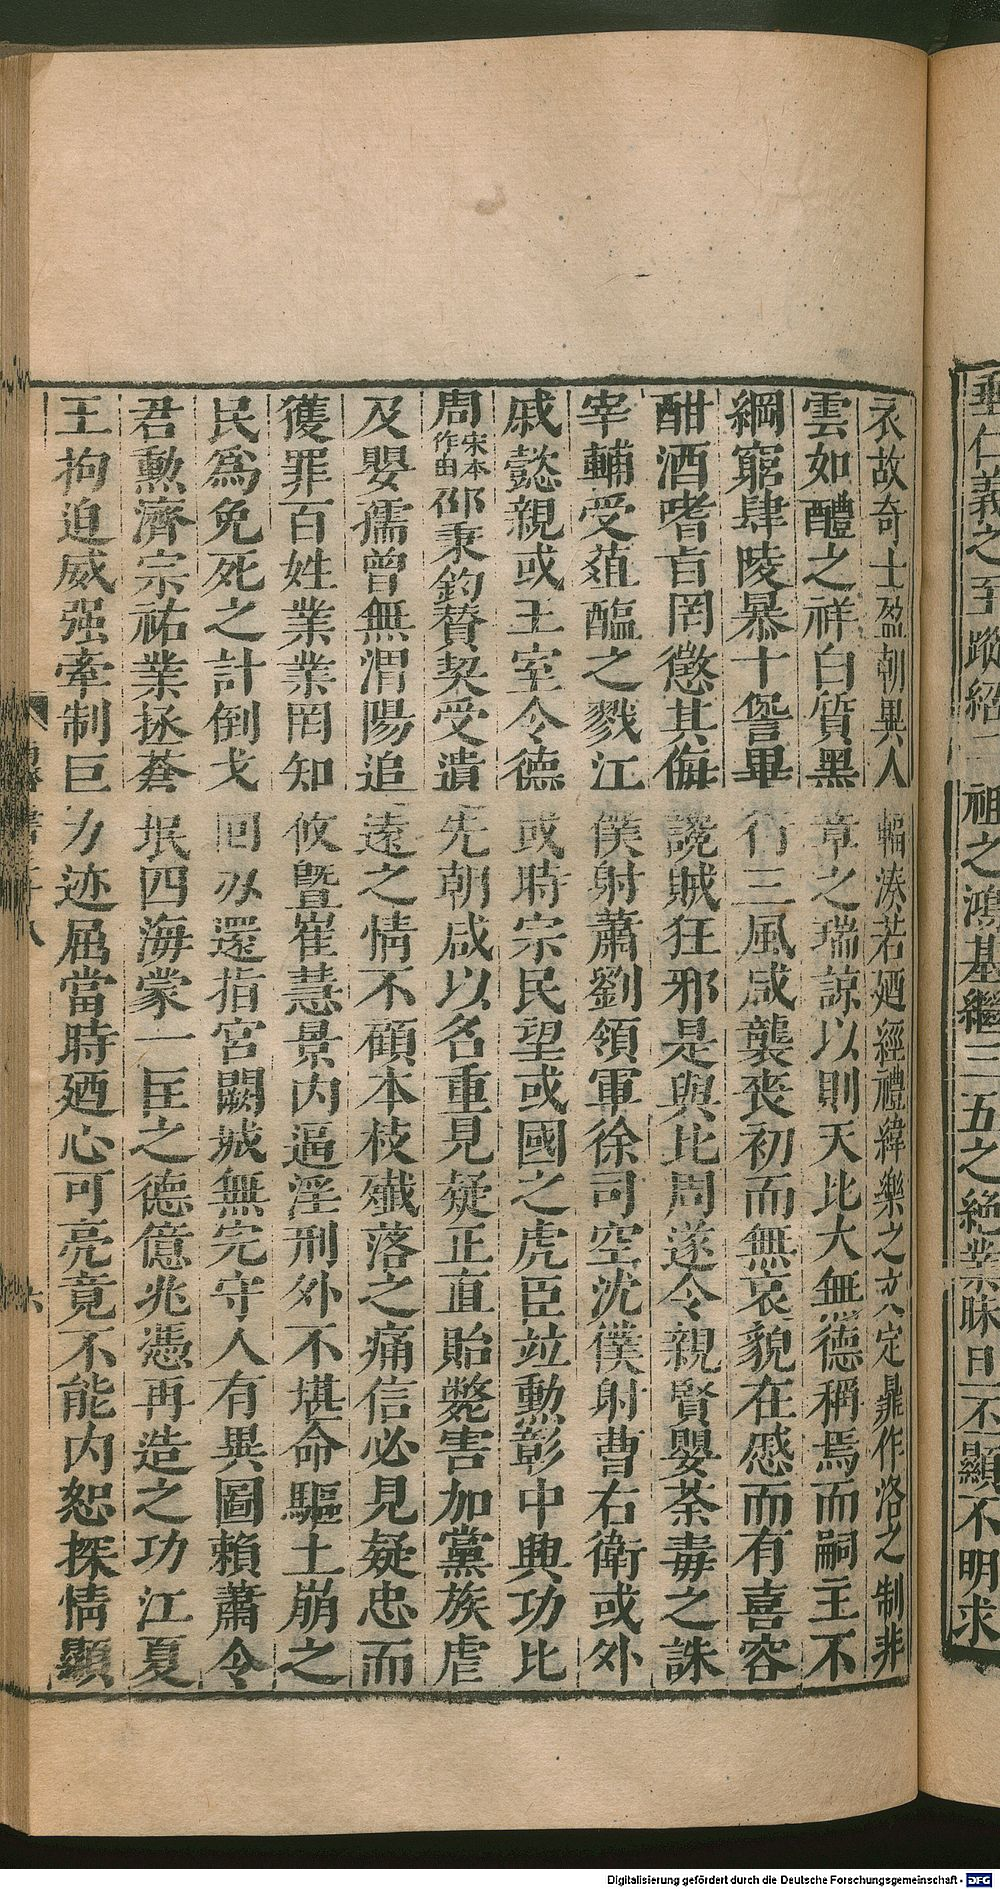 垂仁義之至蹤紹二祖之鴻基繼三五之絶業昧旦丕顯不明求
衣故奇士盈朝異人輻湊若廼經禮緯樂之文定鼎作洛之制非
雲如醴之祥白質黑章之瑞諒以則天比大無德稱焉而嗣主不
綱窮肆陵暴十愆畢行三風咸襲喪初而無哀貌在慼而有喜容
酣酒嗜音罔懲其侮讒賊狂邪是與比周遂令親賢嬰荼毒之誅
宰輔受葅醢之戮江僕射蕭劉領軍徐司空沈僕射曹右衛或外
戚懿親或王室令德或時宗民望或國之虎臣竝勲彰中興功比
周宋本作由邵秉鈞贊契受遺先朝咸以名重見疑正直貽斃害加黨族虐
及嬰孺曾無渭陽追遠之情不顧本枝殲落之痛信必見疑忠而
獲罪百姓業業罔知攸曁崔慧景內逼淫刑外不堪命驅土崩之
民爲免死之計倒戈回刃還指宮闕城無完守人有異圖賴蕭令
君勲濟宗祐業拯蒼氓四海蒙一匡之德億兆憑再造之功江夏
王拘迫威强牽制巨力迹屈當時廼心可亮竟不能內恕探情顯
南齊書卷八
六
Digitalisierung gefördert durch die Deutsche Forschungsgemeinschaft - DFG